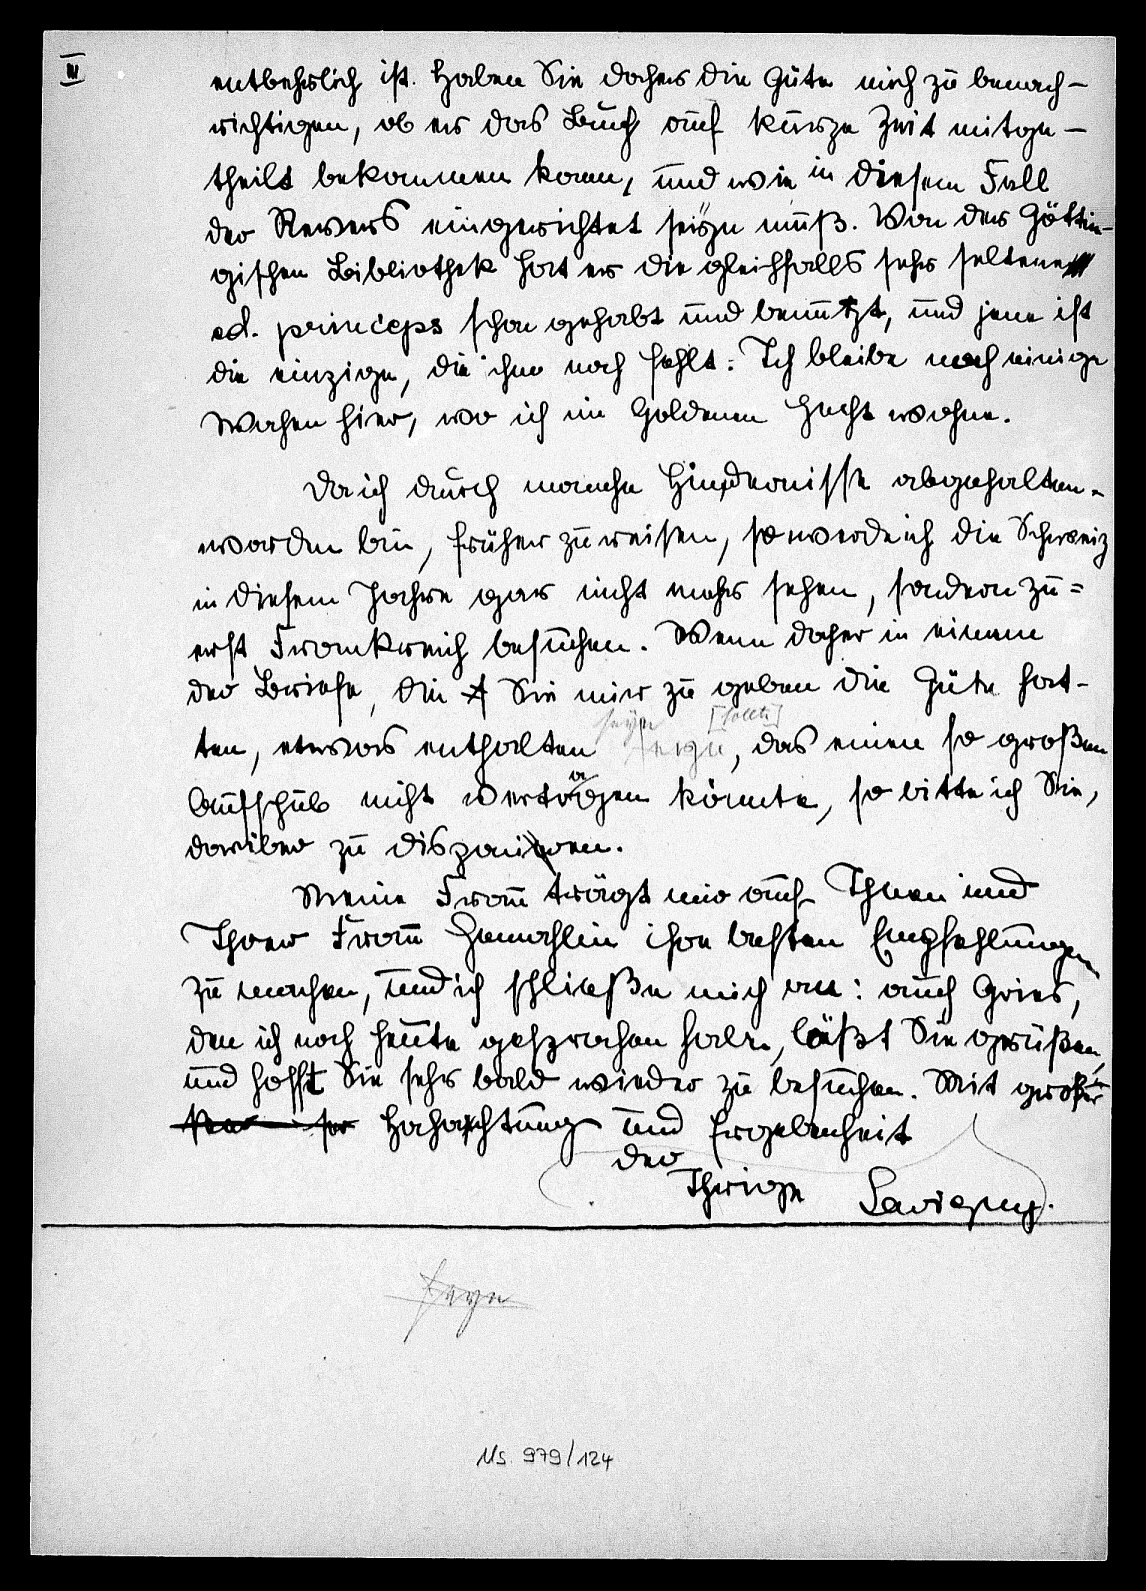 III
entbehrlich ist. Haben Sie daher die Güte mich zu benach-
richtigen, ob er das Buch auf kurze Zeit mitge-
theilt bekommen kann, und wie in diesem Fall
der Revers eingerichtet seyn muß. Von der Göttin-
gischen Bibliothek hat er die gleichfalls sehr seltene
ed. princeps schon gehabt und benutzt, und jene ist
die einzige, die ihm noch fehlt. Ich bleibe noch einige
Wochen hier, wo ich im Goldenen Hecht wohne.
Da ich durch manche Hindernisse abgehalten
worden bin, früher zu reisen, so werde ich die Schweiz
in diesem Jahre gar nicht mehr sehen, sondern zu=
erst Frankreich besuchen. Wenn daher in einem
der Briefe, die Sie mir zu geben die Güte hat-
seyn [sollte]
ten, etwas enthalten seyn, das einen so großen
Aufschub nicht vertragen könnte, so bitte ich Sie,
darüber zu disponiren.
Meine Frau trägt mir auf Ihnen und
Ihrer Frau Gemahlin ihre besten Empfehlungen
zu machen, und ich schließe mich an: auch Gries,
den ich noch heute gesprochen habe, läßt Sie grüßen,
und hofft Sie sehr bald wieder zu besuchen. Mit großer
Hochachtung und Ergebenheit
der
Ihrige Savigny.
seyn
Ms 979/124